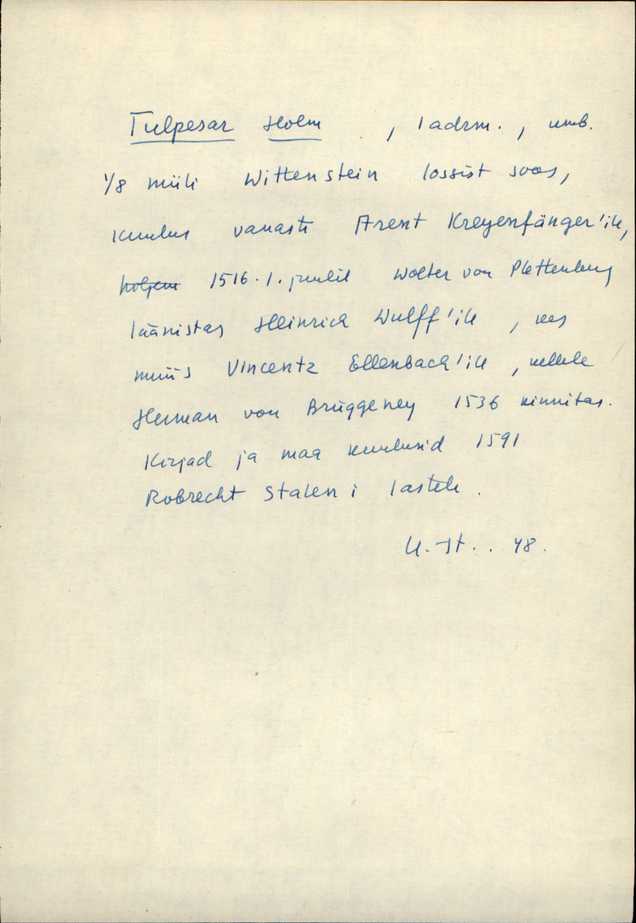 Tulpesar Holm , 1adrm., umb.
1/8 miili Wittenstein lossist soos,
kuulus vanasti Arent Kreyenfänger'ile,
1516. 1. juulil Wolter von Plettenberg
läänistas Heinrich Wulff'ile, kes
müüs Vincentz Ellenbach'ile, kellele
Herman von Brüggeney 1536 kinnitas.
Kirjad ja maa kuulusid 1591
Robrecht Stalen'i lastele.
U.-St.. 48.